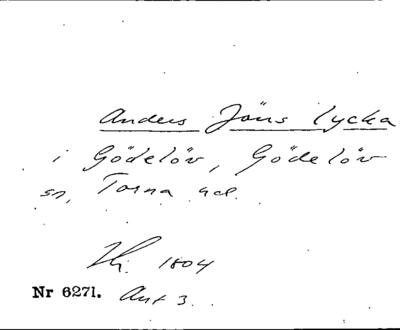 Anders Jöns Lycka
i Gödelöv, Gödelöv
sn, Torna hd.
1804
Nr 6271. Ant 3.